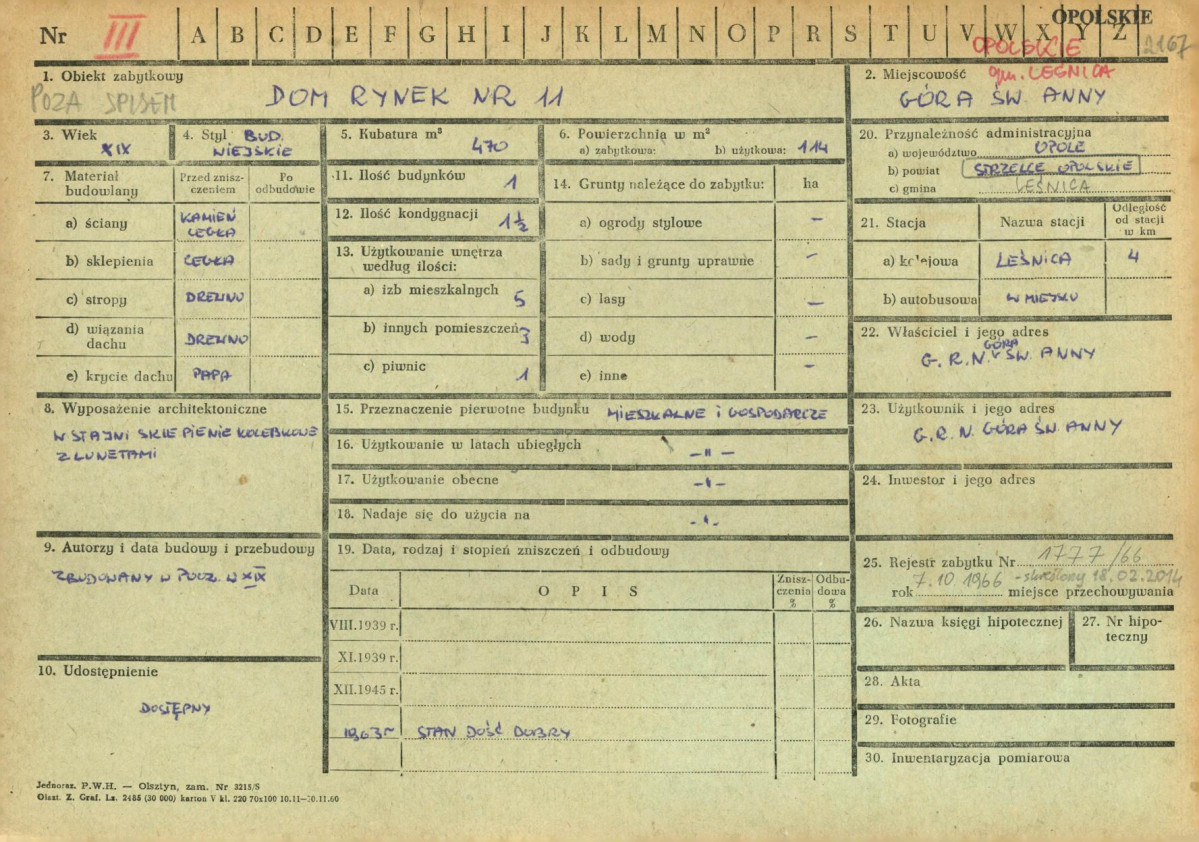 Nr III A B C D E F G H I J K L M N O P R S T U V W X Y Z
OPOLSKIE
OPOLSKIE 2167
gm. LEŚNICA
1. Obiekt zabytkowy
POZA SPISEM
DOM RYNEK NR 11
2. Miejscowość
GÓRA ŚW. ANNY
3. Wiek
XIX
4. Styl BUD.
WIEJSKIE
5. Kubatura m³
470
6. Powierzchnia w m²
a) zabytkowa: b) użytkowa: 114
20. Przynależność administracyjna
a) województwo OPOLE
b) powiat STRZELCE OPOLSKIE
c) gmina LEŚNICA
7. Materiał budowlany
Przed znisz-
czeniem
Po
odbudowie
a) ściany KAMIEŃ
CEGŁA
b) sklepienia CEGŁA
c) stropy DREWNO
d) wiązania
dachu DREWNO
e) krycie dachu PAPA
11. Ilość budynków 1
12. Ilość kondygnacji 1½
13. Użytkowanie wnętrza
według ilości:
a) izb mieszkalnych 5
b) innych pomieszczeń 3
c) piwnic 1
14. Grunty należące do zabytku: ha
a) ogrody stylowe –
b) sady i grunty uprawne –
c) lasy –
d) wody –
e) inne –
21. Stacja Nazwa stacji
Odległość
od stacji
w km
a) kolejowa LEŚNICA 4
b) autobusowa W MIEJSCU
22. Właściciel i jego adres
G. R. N. GÓRA ŚW. ANNY
8. Wyposażenie architektoniczne
W STAJNI SKLEPIENIE KOLEBKOWE
Z LUNETAMI
15. Przeznaczenie pierwotne budynku MIESZKALNE I GOSPODARCZE
16. Użytkowanie w latach ubiegłych – " –
17. Użytkowanie obecne – " –
18. Nadaje się do użycia na – " –
23. Użytkownik i jego adres
G. R. N. GÓRA ŚW. ANNY
24. Inwestor i jego adres
9. Autorzy i data budowy i przebudowy
ZBUDOWANY W POCZ. W XIX
10. Udostępnienie
DOSTĘPNY
19. Data, rodzaj i stopień zniszczeń i odbudowy
Data OPIS
Znisz-
czenia
%
Odbu-
dowa
%
VIII.1939 r.
XI.1939 r.
XII.1945 r.
1963 r STAN DOŚĆ DOBRY
25. Rejestr zabytku Nr 1777/66
rok 7.10.1966 - skreślony 18.02.2014
miejsce przechowywania
26. Nazwa księgi hipotecznej
27. Nr hipo-
teczny
28. Akta
29. Fotografie
30. Inwentaryzacja pomiarowa
Jednoraz. P.W.H. — Olsztyn, zam. Nr 3215/S
Olszt. Z. Graf. Lz. 2485 (30 000) karton V kl. 220 70x100 10.11—30.11.60